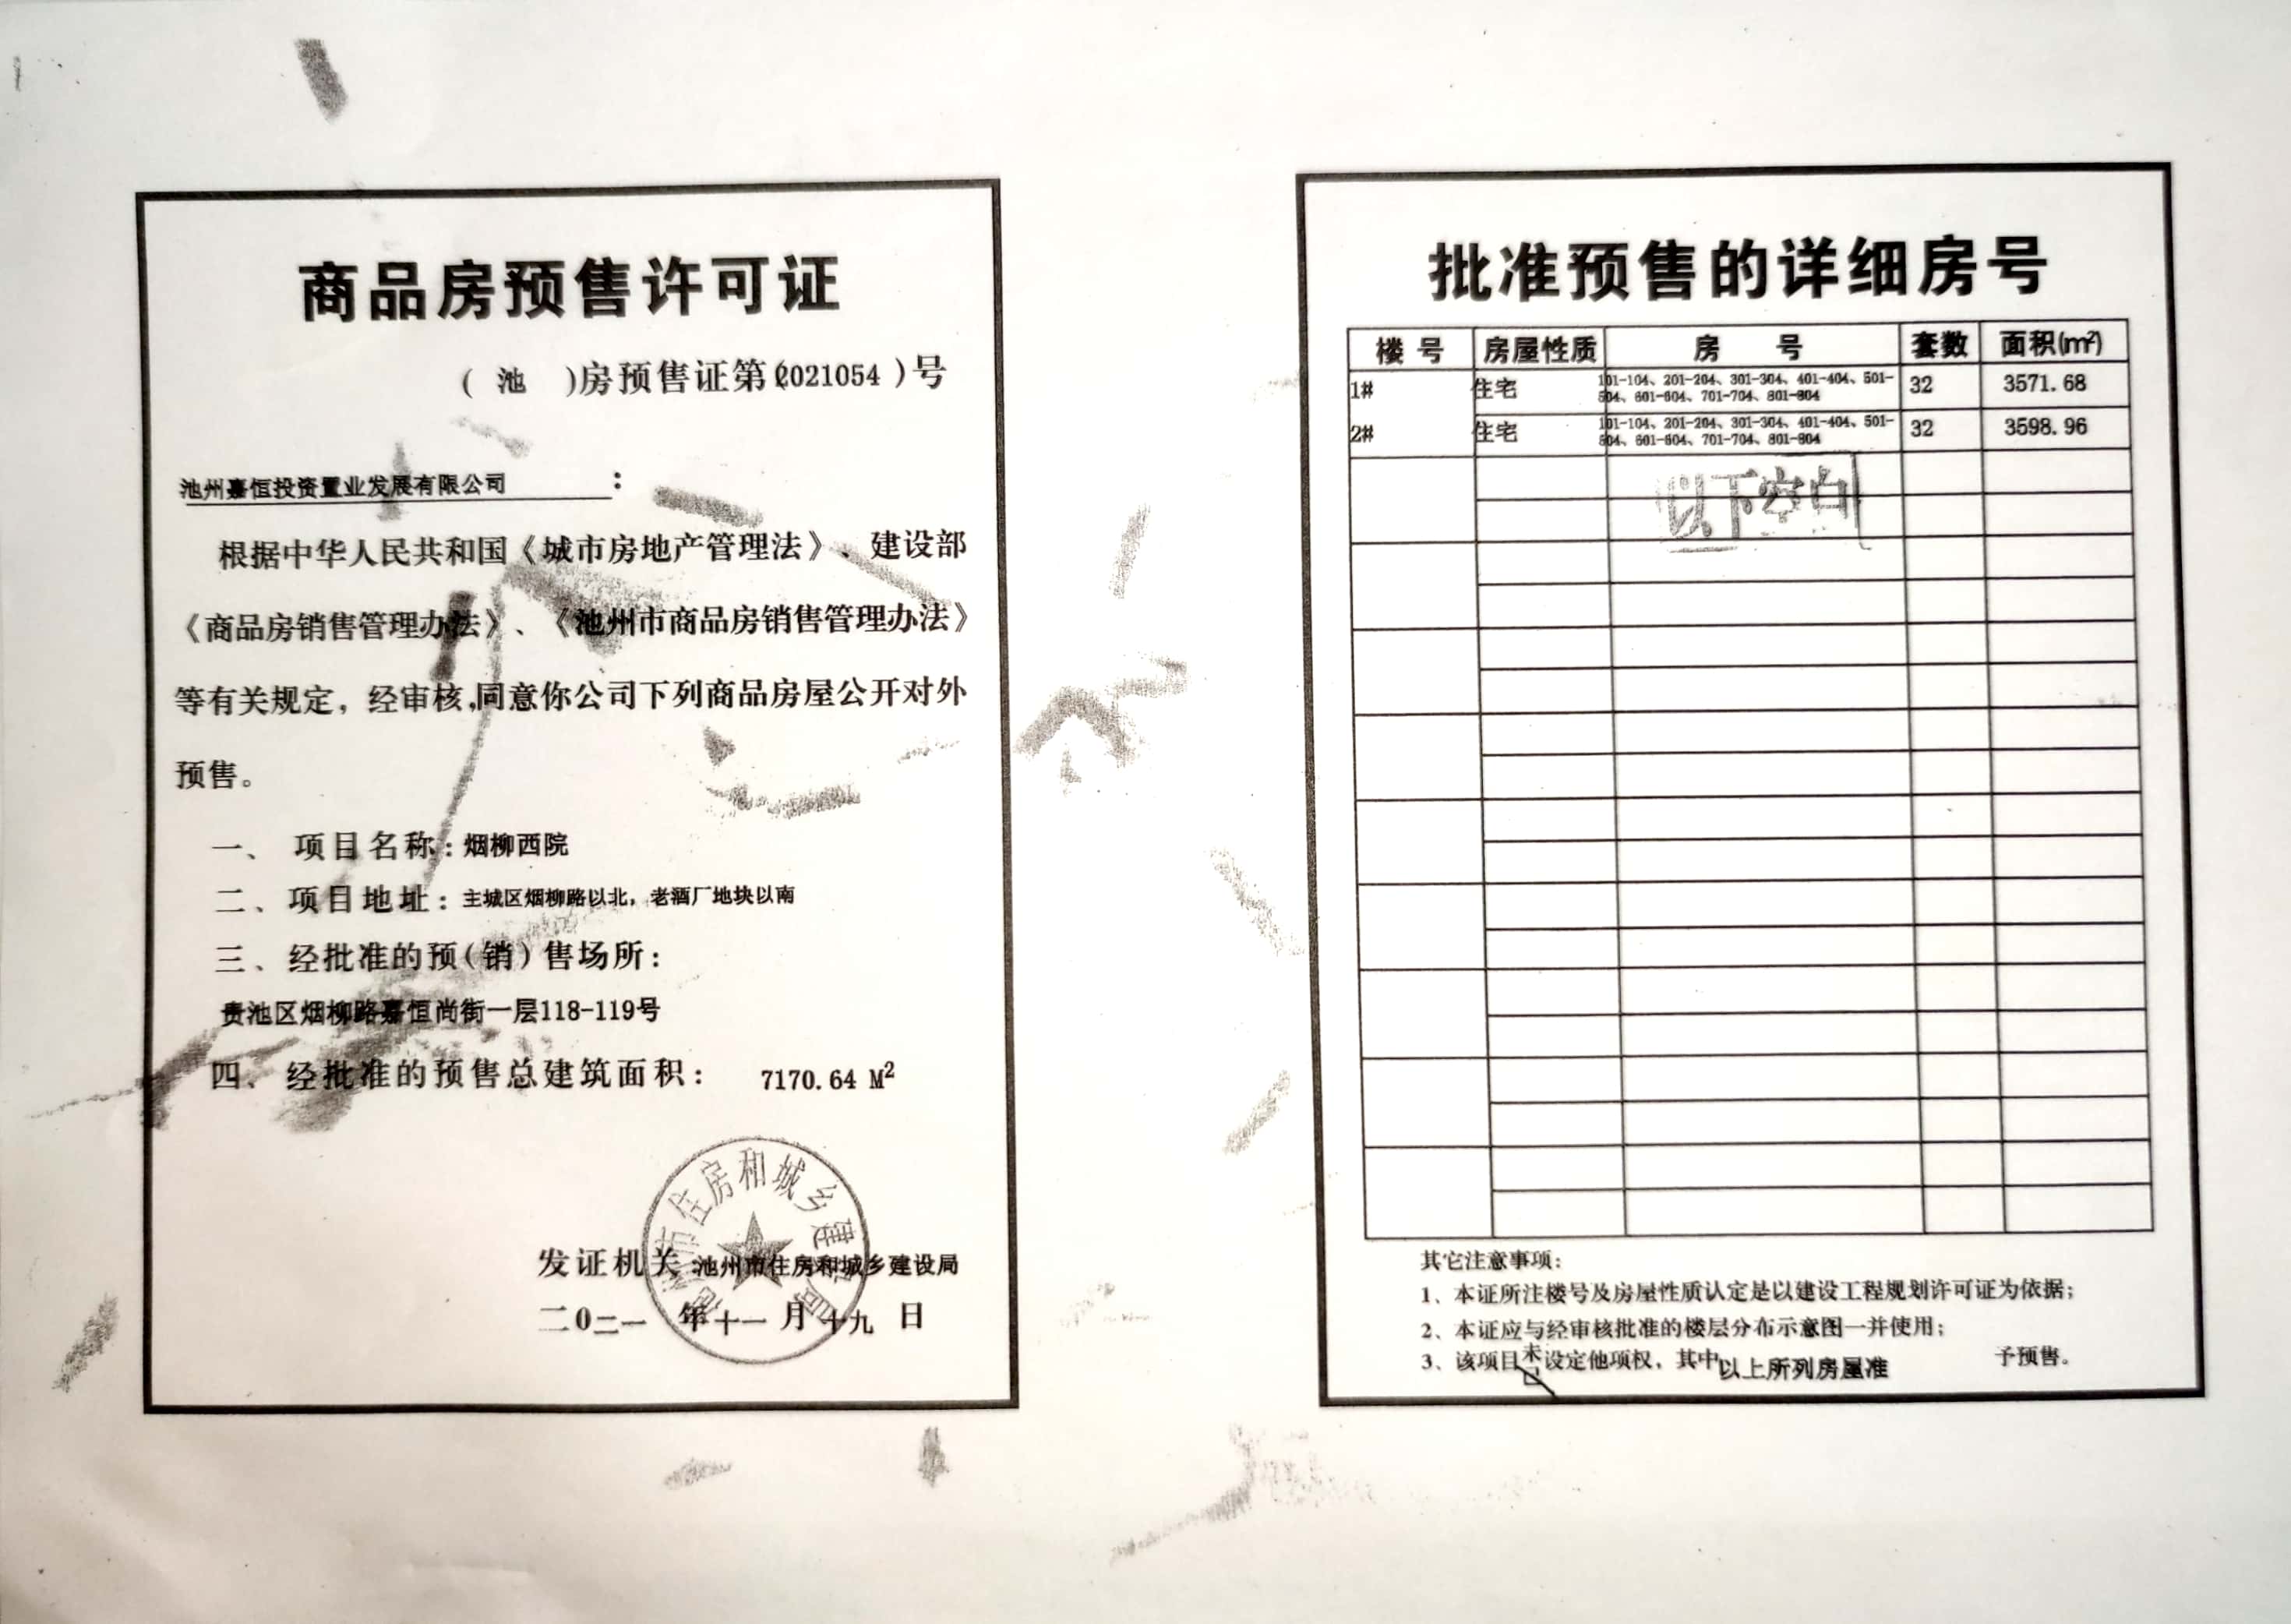 商品房预售许可证
( 池 )房预售证第(2021054)号
池州嘉恒投资置业发展有限公司：
根据中华人民共和国《城市房地产管理法》、建设部
《商品房销售管理办法》、《池州市商品房销售管理办法》
等有关规定，经审核,同意你公司下列商品房屋公开对外
预售。
一、项目名称：烟柳西院
二、项目地址：主城区烟柳路以北，老酒厂地块以南
三、经批准的预(销)售场所：
贵池区烟柳路嘉恒尚街一层118-119号
四、经批准的预售总建筑面积： 7170.64 M²
池州市住房和城乡建设局
发证机关:池州市住房和城乡建设局
二〇二一 年十一月十九 日
批准预售的详细房号
楼号 房屋性质 房 号 套数 面积(m²)
1# 住宅 101-104、201-204、301-304、401-404、501-504、601-604、701-704、801-804 32 3571.68
2# 住宅 101-104、201-204、301-304、401-404、501-504、601-604、701-704、801-804 32 3598.96
以下空白
其它注意事项：
1、本证所注楼号及房屋性质认定是以建设工程规划许可证为依据；
2、本证应与经审核批准的楼层分布示意图一并使用；
3、该项目未已设定他项权，其中以上所列房屋准 予预售。